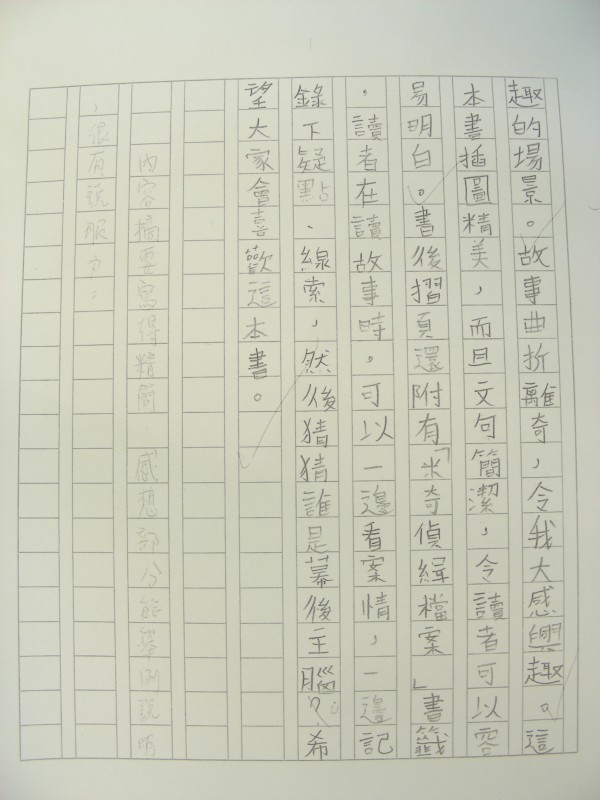 趣的場景。故事曲折離奇，令我大感興趣。這
本書插圖精美，而且文句簡潔，令讀者可以容
易明白。書後摺頁還附有「米奇偵緝檔案」書籤
，讀者在讀故事時，可以一邊看案情，一邊記
錄下疑點、線索，然後猜猜誰是幕後主腦？希
望大家會喜歡這本書。
內容摘要寫得精簡 感想部分能舉例說明
，很有說服力！